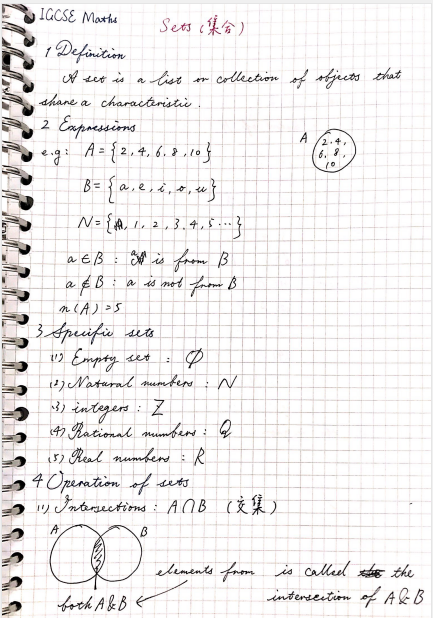 IGCSE Maths
Sets (集合)
1 Definition
A set is a list or collection of objects that
share a characteristic.
2 Expressions
e.g: A = {2, 4, 6, 8, 10}
A
2. 4,
6, 8,
10
B = {a, e, i, o, u}
N = { 1, 2, 3, 4, 5 ... }
a ∈ B : a is from B
a ∉ B : a is not from B
n(A) = 5
3 Specific sets
(1) Empty set : Φ
(2) Natural numbers : N
(3) integers : Z
(4) Rational numbers : Q
(5) Real numbers : R
4 Operation of sets
(1) Intersections : A ∩ B (交集)
A B
elements from is called the
both A&B intersection of A&B